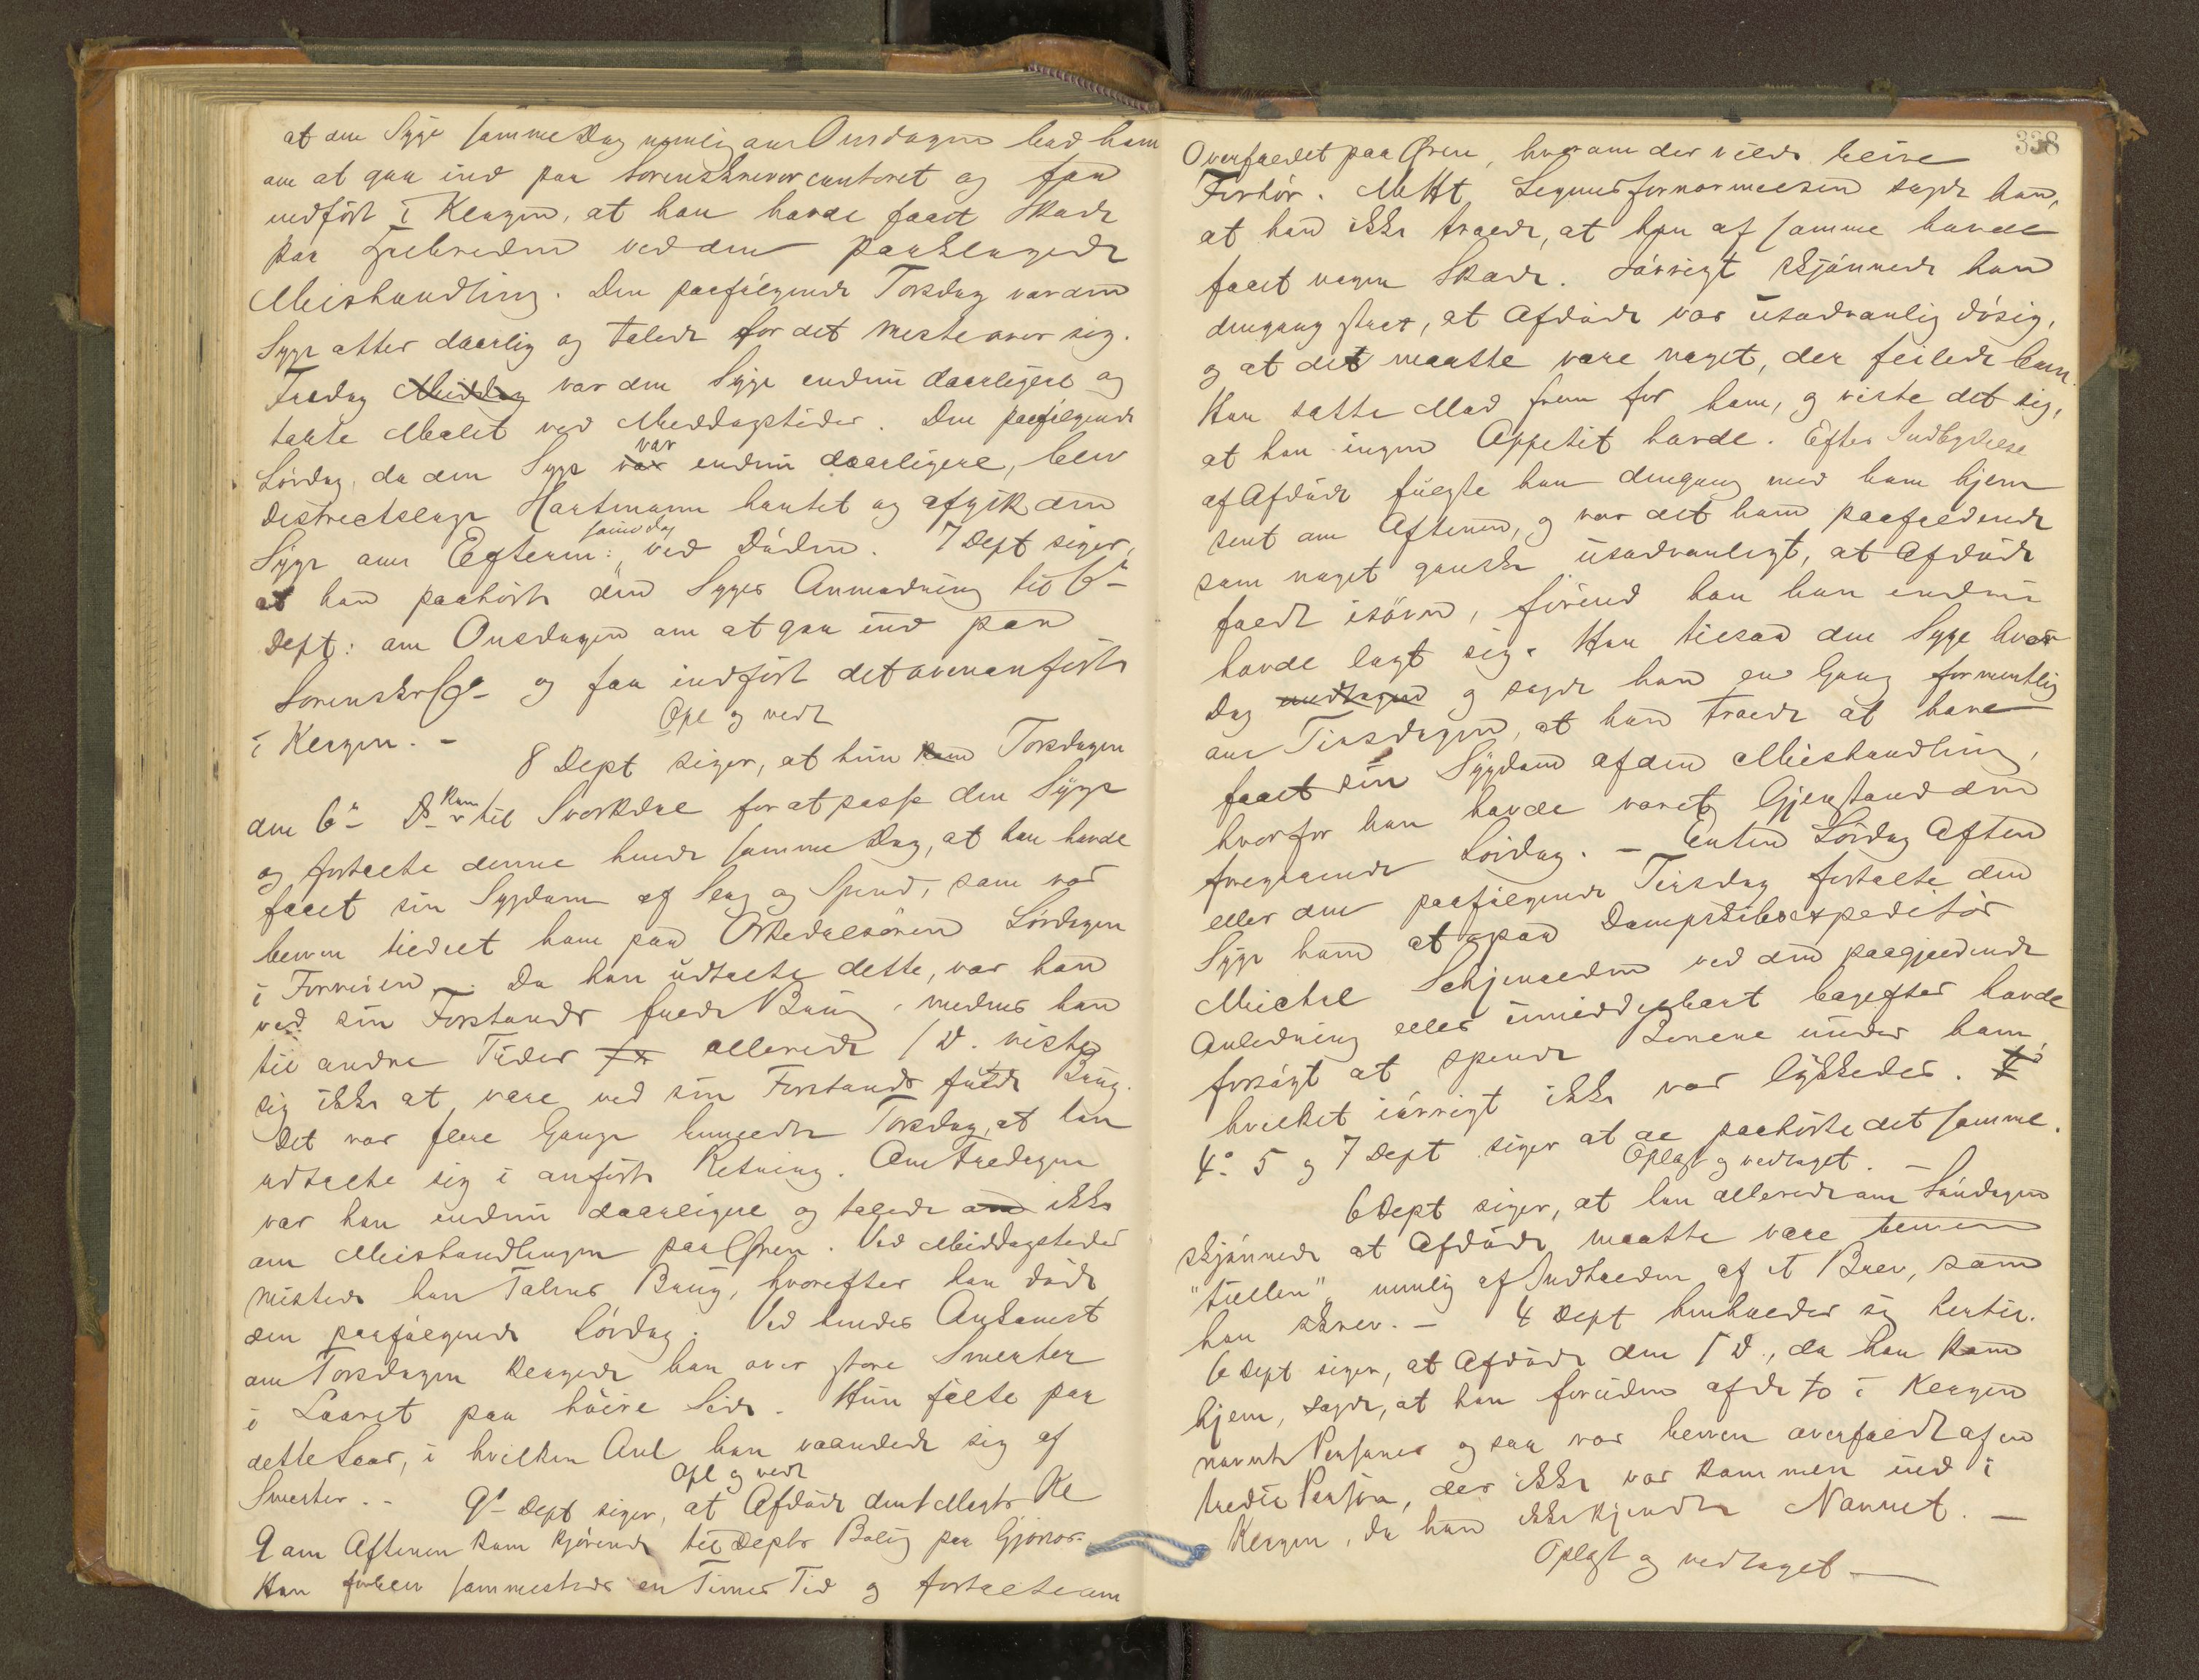 at den Syge samme Dag nemlig om Onsdagen bad ham
om at gaa ind paa Sorenskrivercontoret og faa
indført i Klagen, at han havde faaet Skade
paa   ved den paaklagede
Mishandling. Den paafølgende Torsdag var den
Syge atter daarlig og talede for det meste over sig.
Fredag Middag var den Syge endnu daarligere og
tabte Mælet ved Middagstider. Den paafølgende
Lørdag, da den Syge var var endnu daarligere, blev
Districtslæge Hartmann hentet og afgik den
Syge om Efterm: samme Dag ved Døden. 7 Dept siger,
at han paahørte den Syges Anmodning til 6te
Dept: om Onsdagen om at gaa ind paa
Sorenskr  og faa indført det ovenanførte
i Klagen. - Opl og vedt
8 Dept siger, at hun kom Torsdagen
den 6te ds kom til Svorkdal for at passe den Syge
og fortalte denne hende samme Dag, at han havde
faaet sin Sygdom af Slag og Spend, som var
bleven tildelt ham paa Orkedalsøren Lørdagen
i Forveien. Da han udtalte dette, var han
ved sin Forstands fulde Brug, medens han
til andre Tider allerede s D. viste
sig ikke at være ved sin Forstands fulde Brug.
Det var flere Gange bemeldte Torsdag, at han
udtalte sig i anførte Retning. Om Fredagen
var han endnu daarligere og talede om ikke
om Mishandlingen paa Øren. Ved Middagstider
mistede han Talens Brug, hvorefter han døde
den paafølgende Lørdag. Ved hendes Ankomst
om Torsdagen klagede han over store Smerter
i Laaret paa høire Side. Hun følte paa
dette Laar, i hvilken Anl han vaandede sig af
Smerter. - Opl og vedt
9de Dept siger, at Afdøde den 1 Mai Kl
9 om Aftenen kom kjørende til Depts Bolig paa Gjønnes.
Han forblev sammesteds en Times Tid og fortalte om
338
Overfaldet paa Øren, hvorom der vilde blive
Forhør. Mht Legemsfornærmelsen sagde han,
at han ikke troede, at han af samme havde
faaet nogen Skade. Iøvrigt skjønnede han
dengang strax, at Afdøde var usædvanlig døsig,
og at det maatte være noget, der feilede ham.
Han satte Mad frem for ham, og viste det sig,
at han ingen Appetit havde. Efter Indbydelse
af Afdøde fulgte han dengang med ham hjem
sent om Aftenen, og var det ham paafaldende
som noget ganske usædvanligt, at Afdøde
faldt isøvn, førend han han endnu
havde lagt sig. Han tilsaa den Syge hver
Dag og sagde han en Gang formentlig
om Tirsdagen, at han troede at have
faaet sin Sygdom af den Mishandling,
hvorfor han havde været Gjenstand den
foregaaende Lørdag. - Enten Lørdag Aften
eller den paafølgende Tirsdag fortalte den
Syge ham at Dampskibsexpeditør
Michal Schjenaldn ved den paagjældende
Anledning eller umiddelbart bagefter havde
forsøgt at spende Benene under ham,
hvilket iøvrigt ikke var lykkedes.
4de 5 og 7 Dept siger at de paahørte det samme.
Oplæst og vedtaget. -
6 Dept siger, at han allerede om Søndagen
skjønnede at Afdøde maatte være bleven
"tullen", nemlig af Indholdet af et Brev, som
han skrev. - 4 Dept henholder sig hertil.
6 Dept siger, at Afdøde den 1 D., da han kom
hjem, sagde, at han foruden af de to i Klagen
nævnte Personer ogsaa var bleven overfaldt af en
tredie Person, der ikke var kommen ind i
Klagen, da han ikke kjendte Navnet. -
Oplæst og vedtaget -